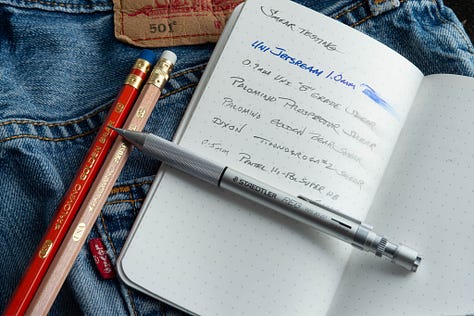 501
SMEAR TESTING
UNI JETSREAM 1.0mm
0.9mm UNI B GRADE SMEAR
PALOMINO PROSPECTOR SMEAR
PALOMINO GOLDEN BEAR SMEAR
DIXON TICONDEROGA #2 SMEAR
0.5mm PENTEL HI-POLYMER HB
STAEDTLER
PALOMINO GOLDEN